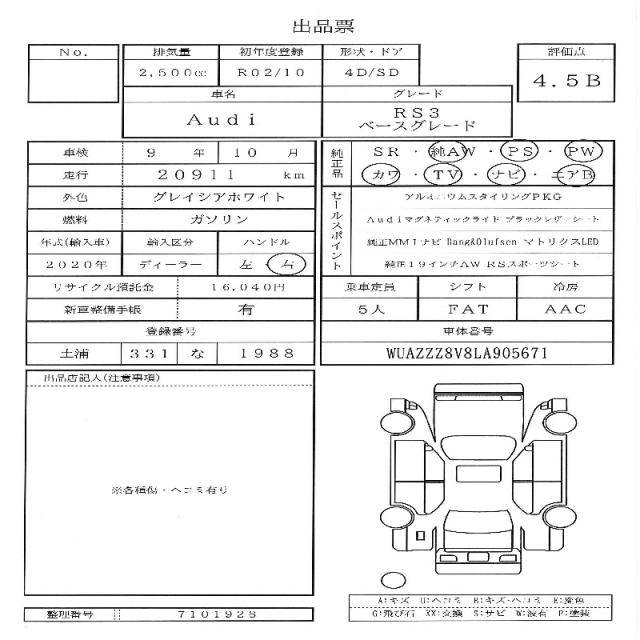 出品票
No.
排気量 初年度登録 形状・ドア 評価点
2,500cc R02/10 4D/SD 4.5B
車名 グレード
Audi RS3
ベースグレード
車検 9 年 10 月
走行 20911 km
外色 グレイシアホワイト
燃料 ガソリン
年式(輸入車) 輸入区分 ハンドル
2020年 ディーラー 左・右
リサイクル預託金 16,040円
新車整備手帳 有
登録番号
土浦 331 な 1988
純正品
SR・純AW・PS・PW
カワ・TV・ナビ・エアB
セールスポイント
アルミニウムスタイリングPKG
Audiマグネティックライド ブラックレザーシート
純正MMIナビ Bang&Olufsen マトリクスLED
純正19インチAW RSスポーツシート
乗車定員 シフト 冷房
5人 FAT AAC
車体番号
WUAZZZ8V8LA905671
出品店記入(注意事項)
※各種傷・ヘコミ有り
整理番号 7101928
A:キズ U:ヘコミ B:キズ・ヘコミ E:変色
G:飛び石 XX:交換 S:サビ W:波有 P:塗装